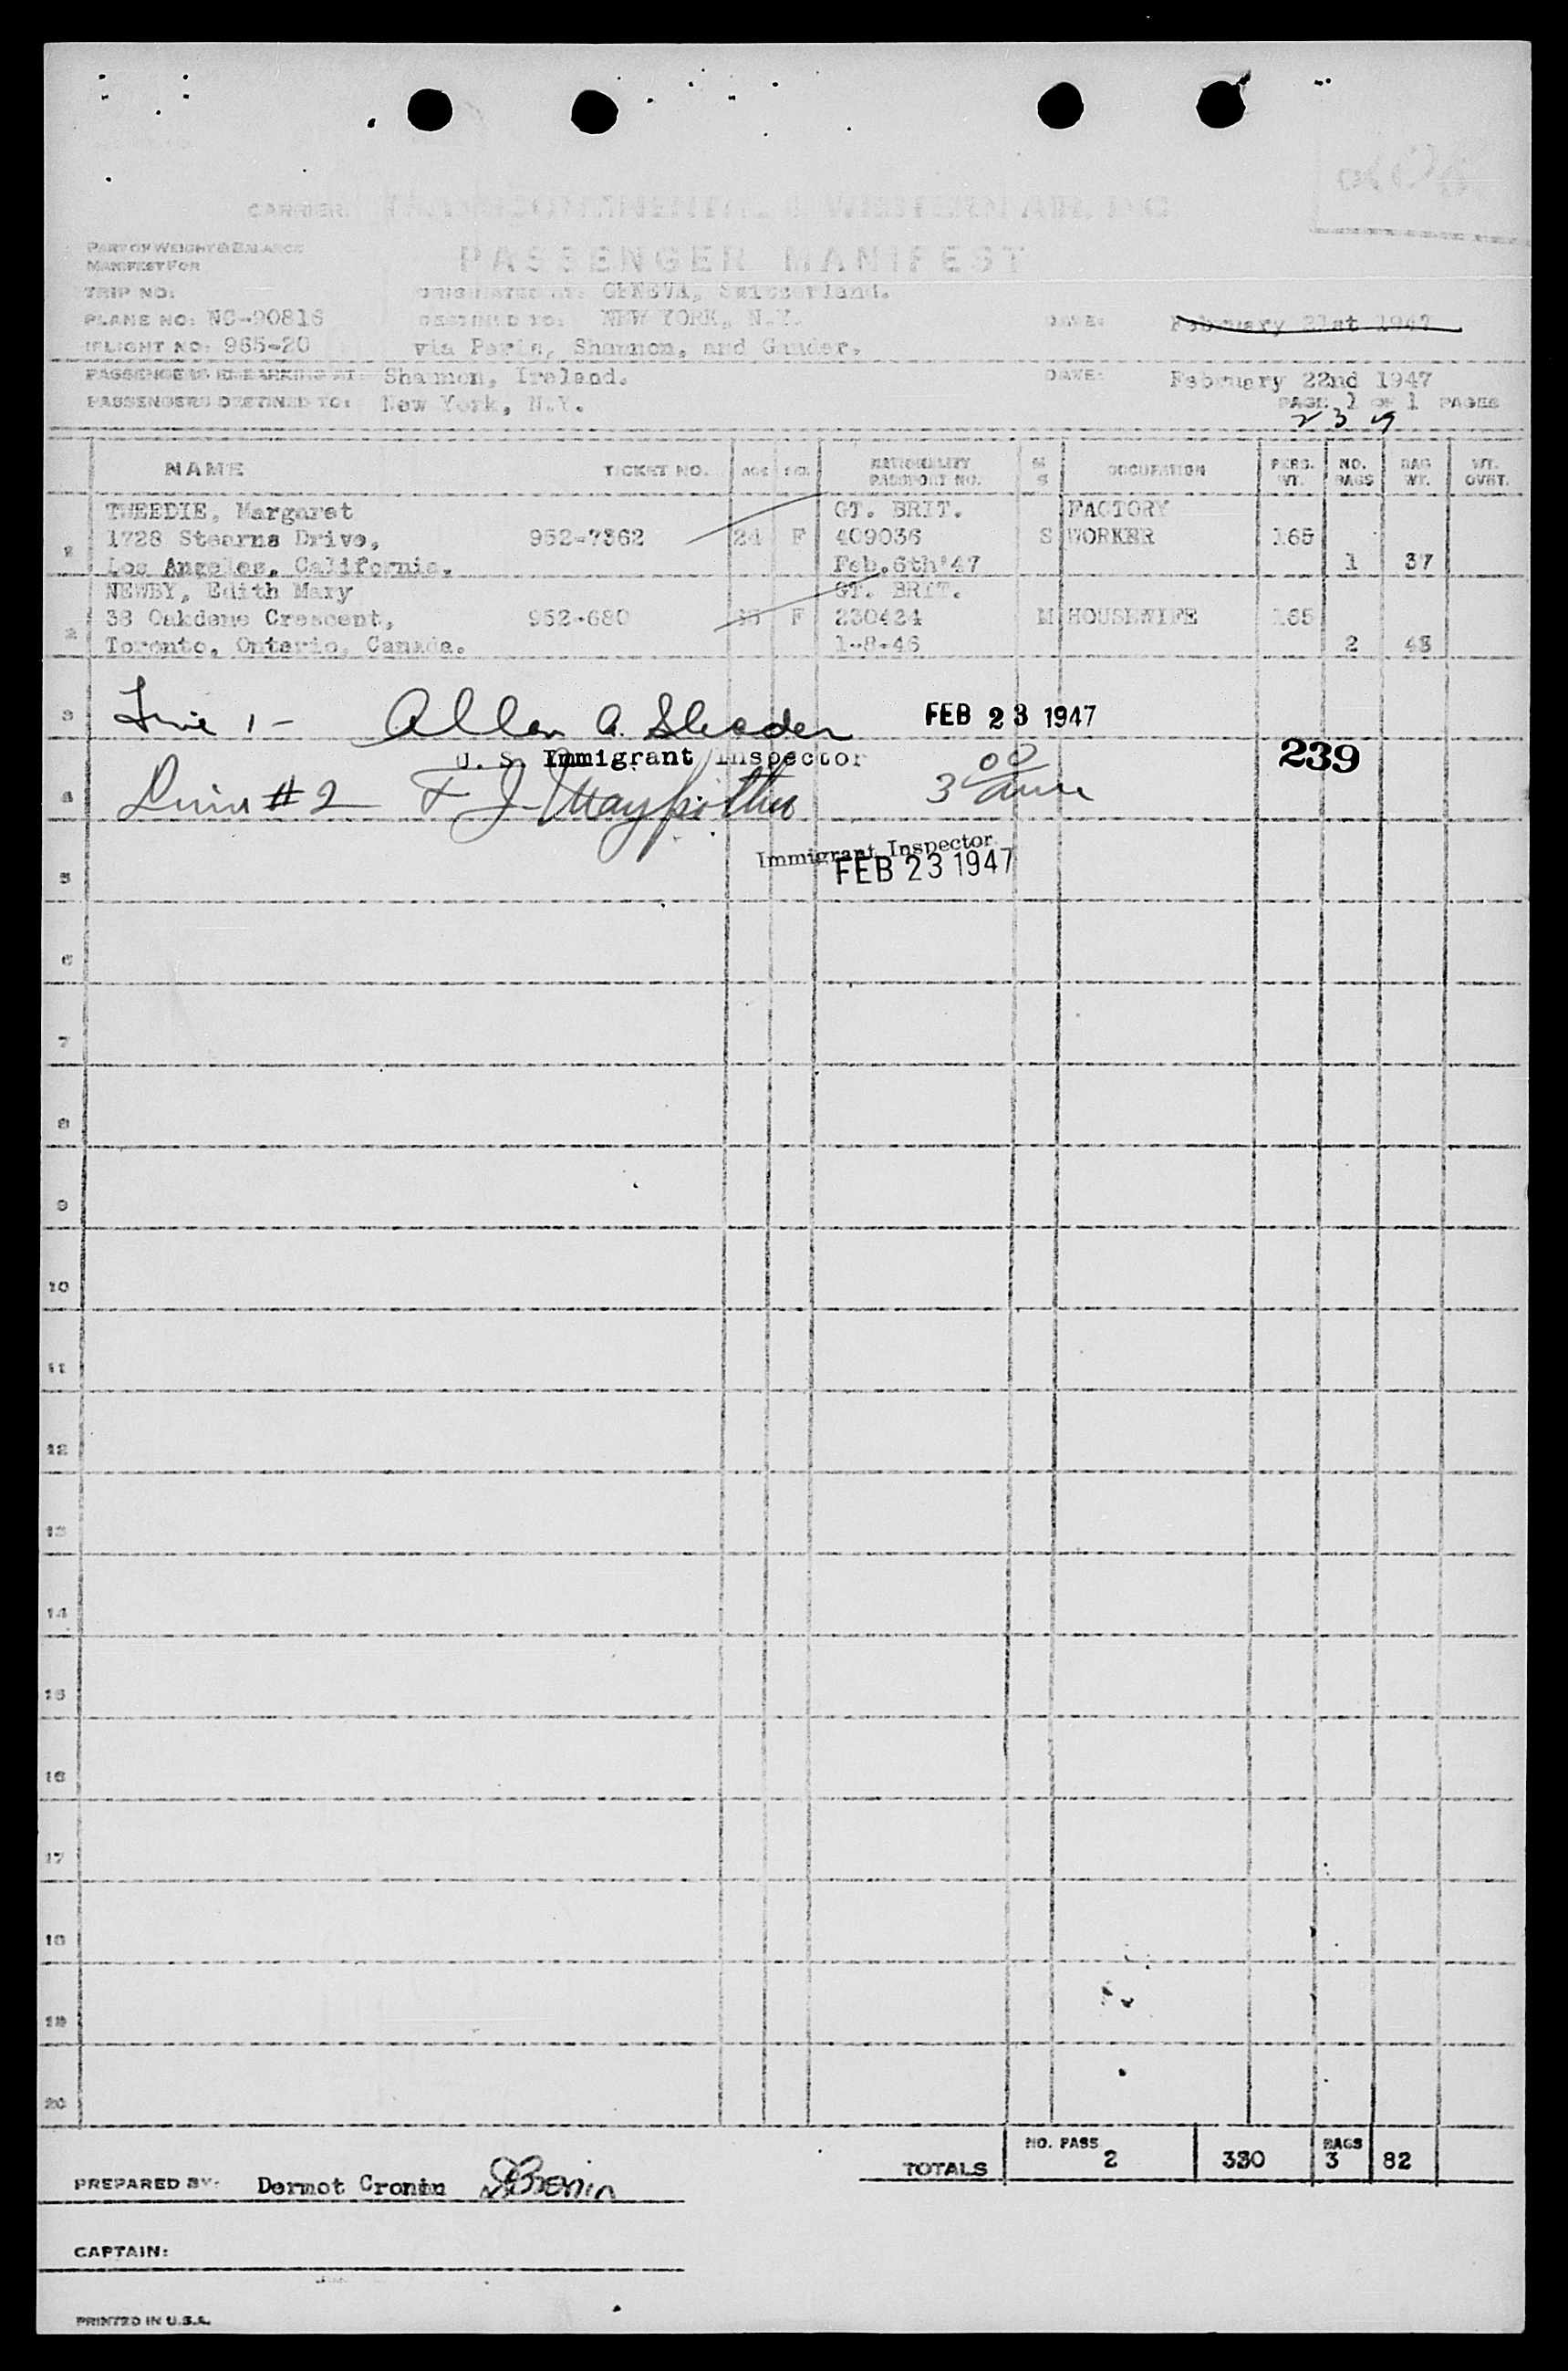 CARRIER: TRANSCONTINENTAL & WESTERN AIR, INC
PART OF WEIGHT & BALANCE
MANIFEST FOR
PASSENGER MANIFEST
TRIP NO:
ORIGINATED AT: GENEVA, Switzerland.
PLANE NO: NC-90816 DESTINED TO: NEW YORK, N.Y. DATE: February 21st 1947
FLIGHT NO: 965-20 via Paris, Shannon, and Gander.
PASSENGERS EMBARKING AT: Shannon, Ireland. DATE: February 22nd 1947
PASSENGERS DESTINED TO: New York, N.Y. PAGE 1 OF 1 PAGES
239
NAME TICKET NO. AGE SEX NATIONALITY PASSPORT NO. M S OCCUPATION PERS. WT. NO. BAGS BAG WT. WT. OVRT.
TWEEDIE, Margaret GT. BRIT. FACTORY
1 1728 Stearns Drive, 952-7362 24 F 409036 S WORKER 165
Los Angeles, California. Feb.6th'47 1 37
NEWBY, Edith Mary GT. BRIT.
2 38 Oakdene Crescent, 952-680 F 230424 M HOUSEWIFE 165
Toronto, Ontario, Canada. 1-8-46 2 45
3 Line 1 - Allen A. FEB 23 1947
U. S. Immigrant Inspector 239
4 Line #2 F J 3 00
Immigrant Inspector
FEB 23 1947
5
6
7
8
9
10
11
12
13
14
15
16
17
18
19
20
TOTALS NO. PASS 2 330 BAGS 3 82
PREPARED BY: Dermot Cronin DCronin
CAPTAIN:
PRINTED IN U.S.A.